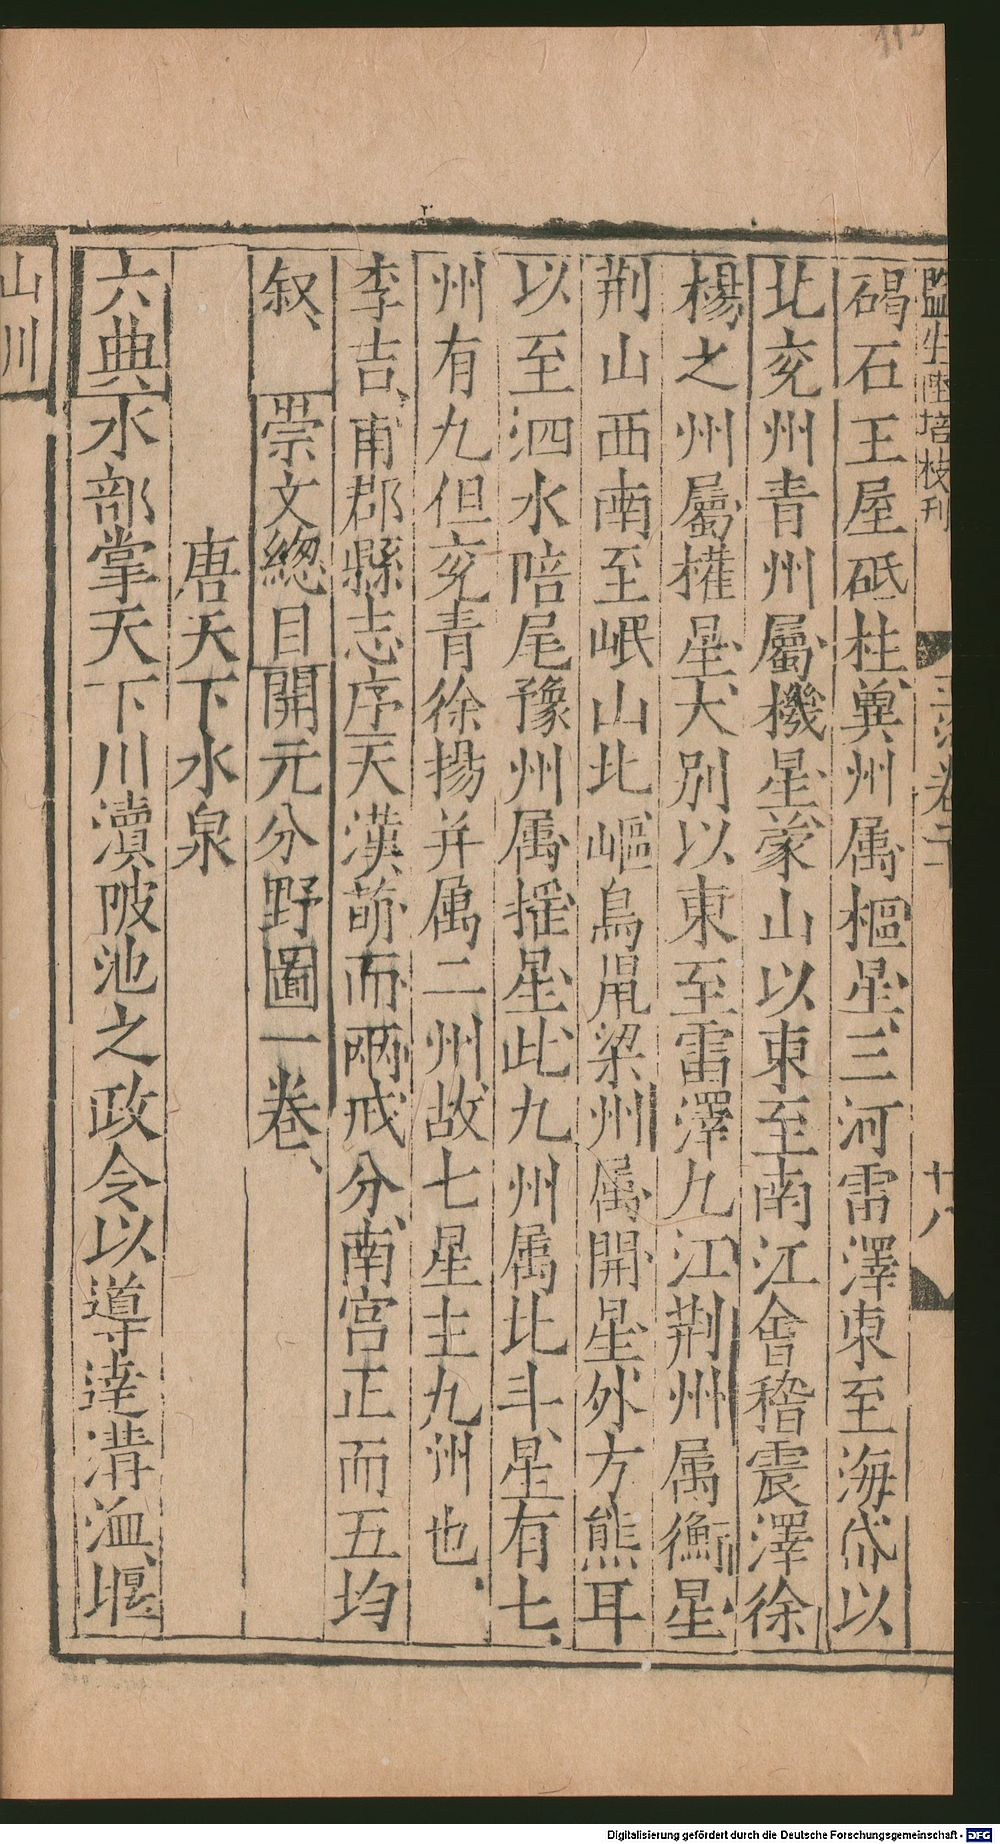 監生陸培校刊 玉海卷二十 廿八
碣石王屋砥柱兾州属樞星三河雷澤東至海岱以
北兖州青州屬機星蒙山以東至南江會稽震澤徐
楊之州屬權星大別以東至雷澤九江荆州属衡星
荆山西南至岷山北嶇鳥鼠梁州属開星外方熊耳
以至泗水陪尾豫州属揺星此九州属北斗星有七
州有九但兖青徐揚并属二州故七星主九州也
李吉甫郡縣志序天漢萌而兩戒分南宮正而五均
叙 崇文緫目開元分野圖一卷
唐天下水泉
六典水部掌天下川瀆陂池之政令以導達溝洫堰
山川
Digitalisierung gefördert durch die Deutsche Forschungsgemeinschaft - DFG